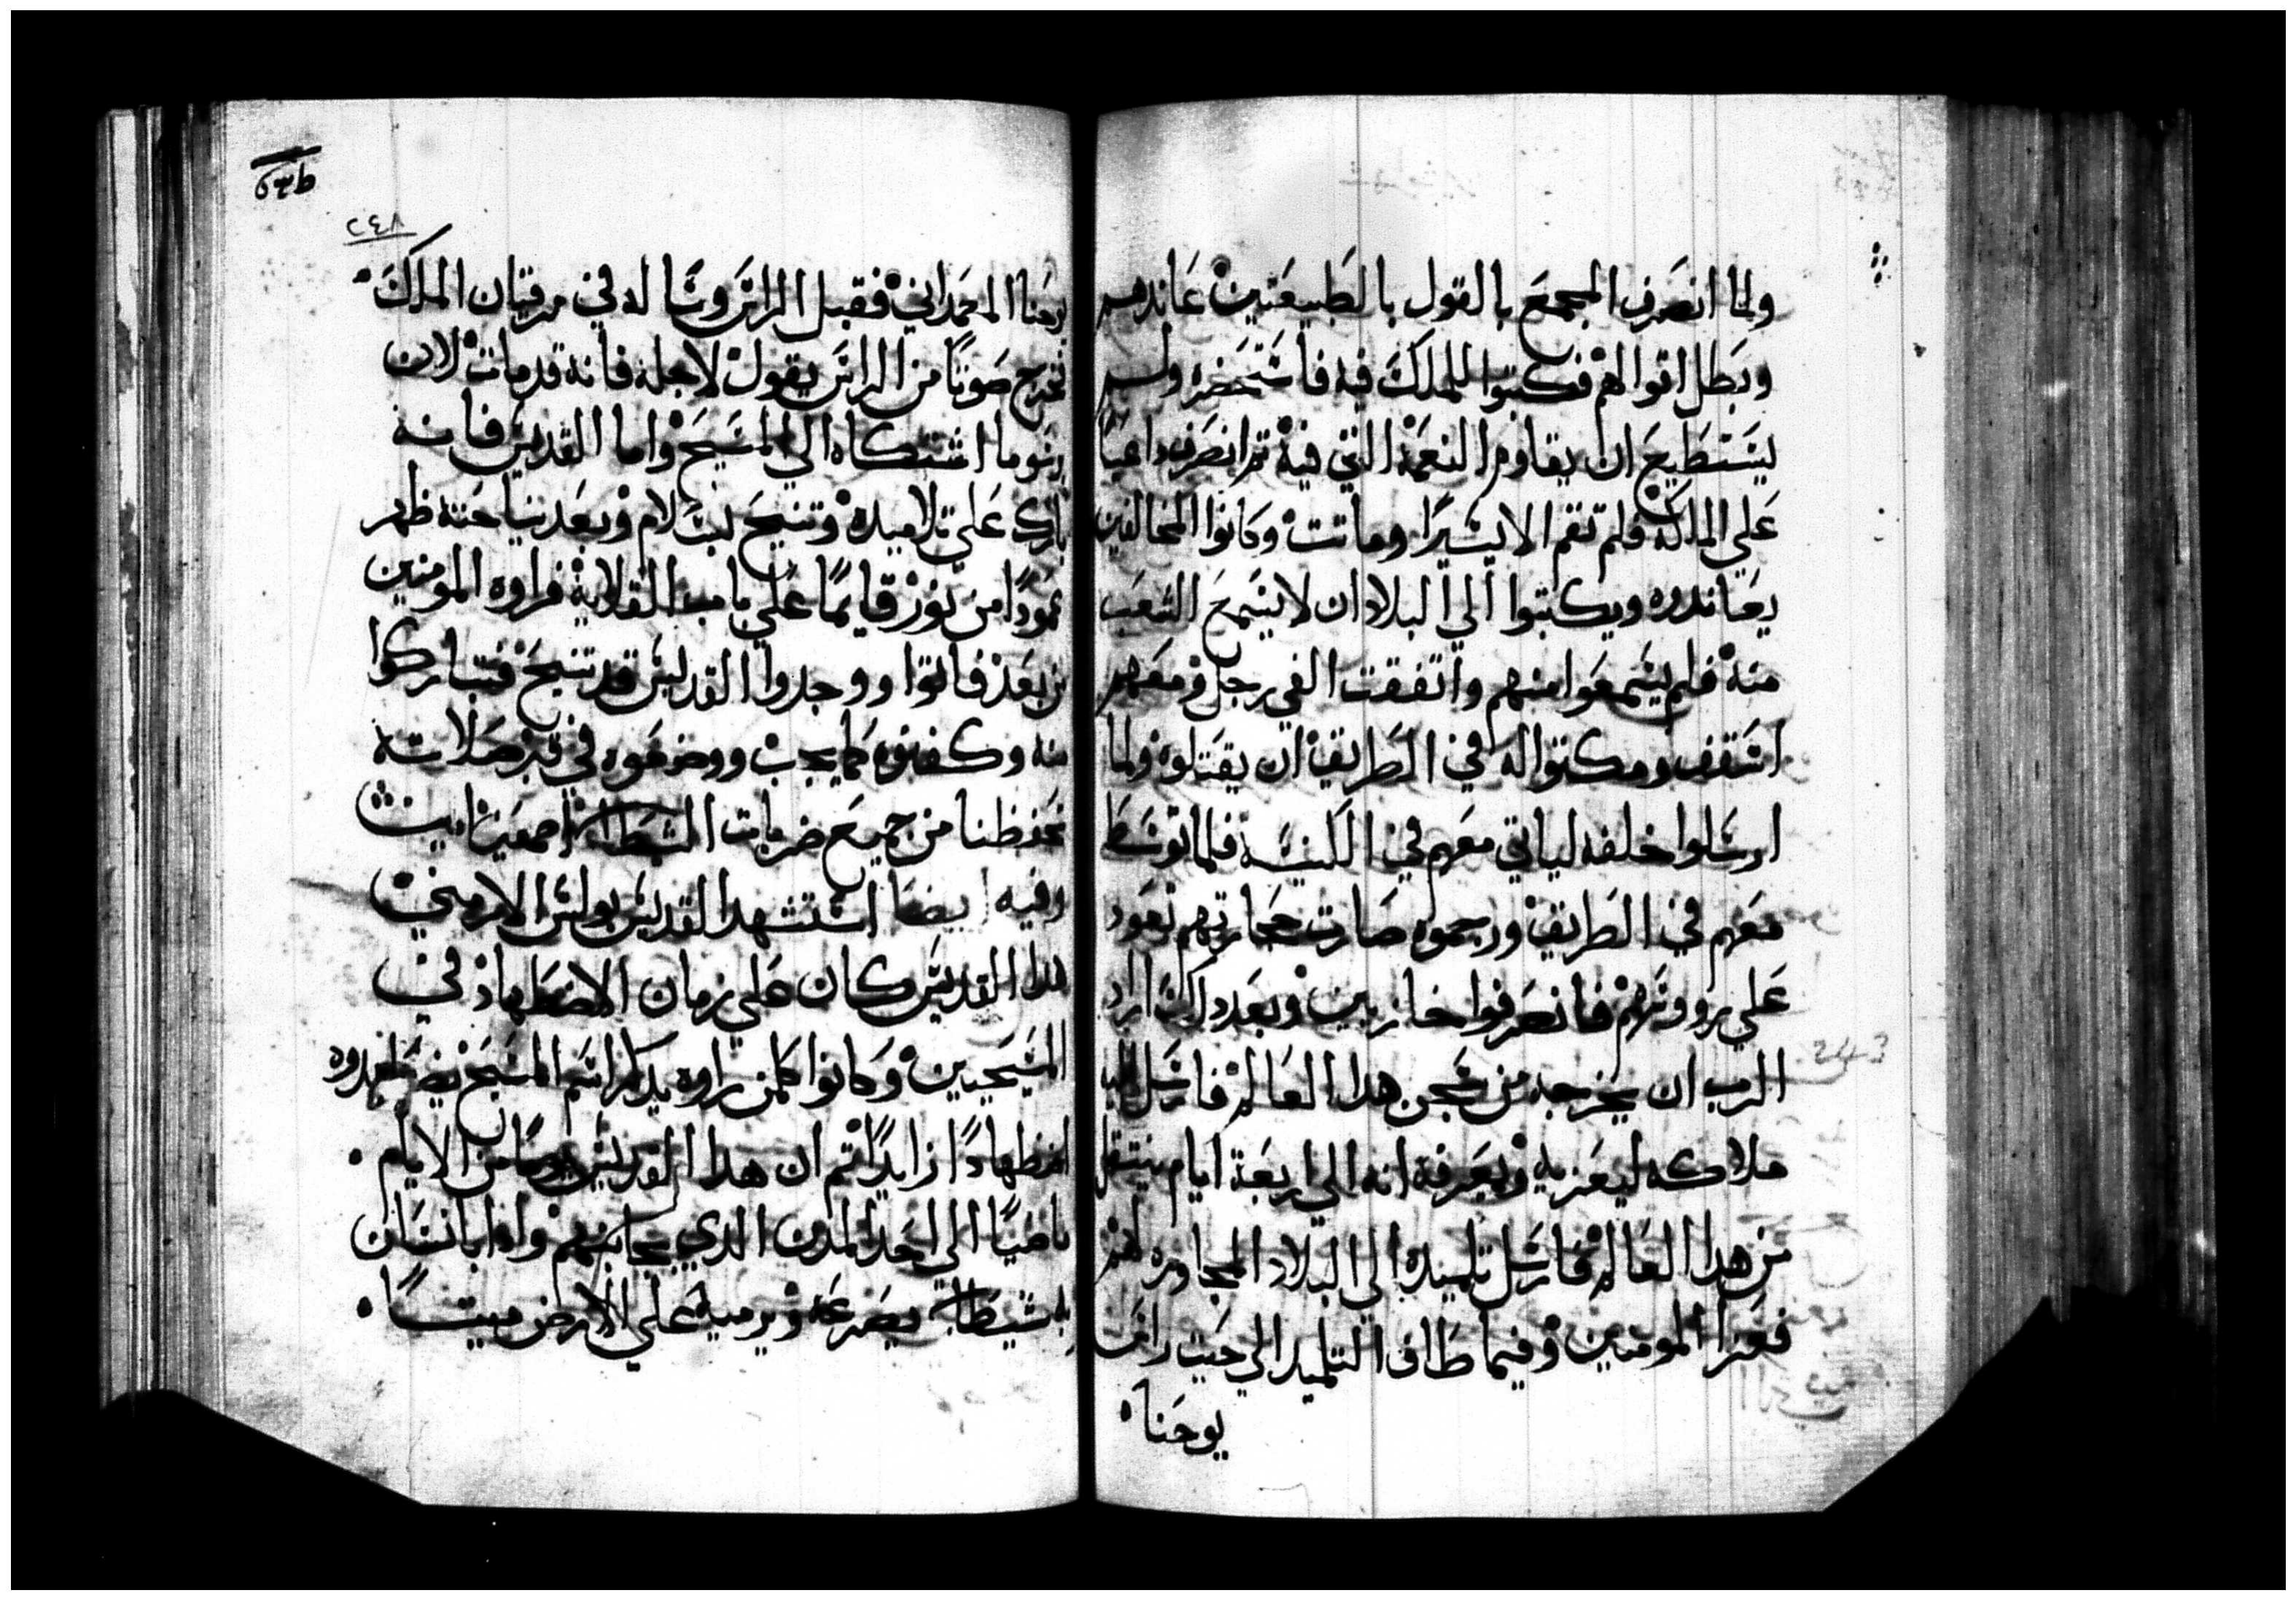 ولما انصرف المجمع بالقول بالطبيعتين عاندهم
وبطل اقوالهم فكتبوا للملك فيه فاستحضره ولم
يستطيع ان يقاوم النعمة التي فيه تم انصرف داعيا
علي الملك فلم تقم الا يسيرا وماتت وكانوا المخالفين
يعاندوه ويكتبوا الي البلاد ان لا يسمع الشعب
منه فلم يسمعوا منهم واتفقت الفي رجل ومعهم
اسقف ومكتوا له في الطريق ان يقتلوه ولما
ارسلوا خلفه لياتي معهم في الكنيسة فلما توسط
معهم في الطريق ورجموه صارت حجارتهم تعود
علي رووسهم فانصرفوا خازيين وبعد دلك اراد
الرب ان يخرجه من سجن هدا العالم فارسل اليه
ملاكه ليعزيه ويعرفه انه الي اربعة ايام ينتقل
من هدا العالم فارسل تلميده الي البلاد المجاوره لهم
فعزا المومنين وفيما طاف التلميد الي حيت راس
يوحنا
٢٤٨
يوحنا المعمداني فقبل الراس وساله في مرقيان الملك
فخرج صوتا من الراس يقول لاجله فانه قد مات لان
اشتكاه الي المسيح واما القديس فانه
بارك علي تلاميده وتنيح بسلام وبعد نياحته ظهر
عمودا من نور قايما علي باب القلاية فراوه المومنين
من بعد فاتوا ووجدوا القديس قد تنيح فتباركوا
منه وكفنوه كما يجب ووضعوه في قبر صلاته
تحفظنا من جميع ضربات الشيطان اجمعين امين
وفيه ايضا استشهد القديس بولس الارمني
هدا القديس كان علي زمان الاضطهاد في
المسيحيين وكانوا كلمن راوه يدكر اسم المسيح يضطهدوه
اضطهادا زايدا تم ان هدا القديس يوما من الايام
ماضيا الي احد المدن الدي بجانبهم وادا بانسان
به شيطان يصرعه ويرميه علي الارض ميتا